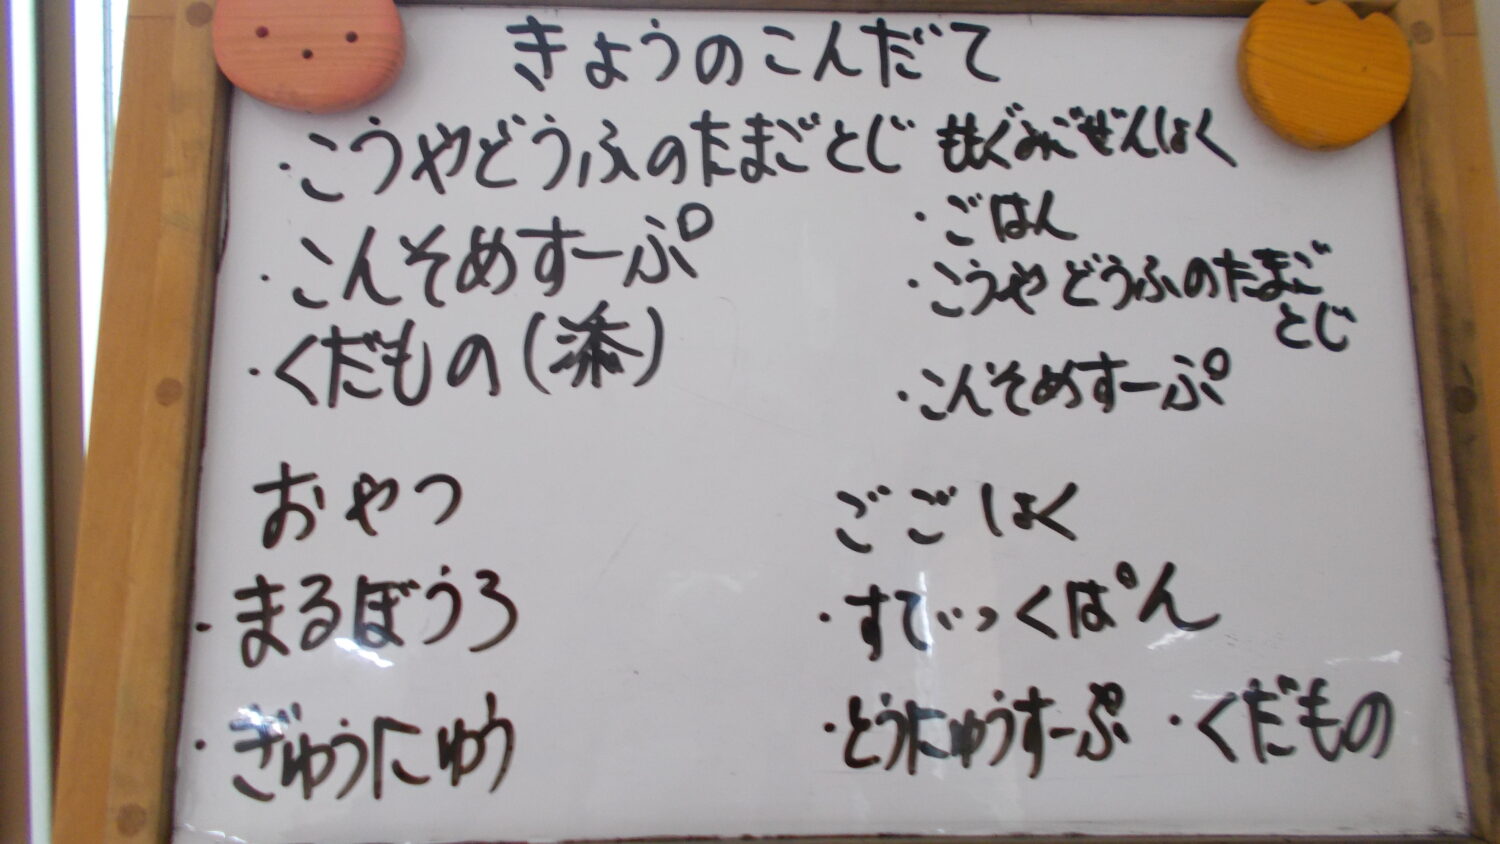 きょうのこんだて
・こうやどうふのたまごとじ
・こんそめすーぷ
・くだもの(添)
おやつ
・まるぼうろ
・ぎゅうにゅう
もぐもぐごぜんしょく
・ごはん
・こうやどうふのたまご
とじ
・こんそめすーぷ
ごごしょく
・すてぃっくぱん
・とうにゅうすーぷ ・くだもの